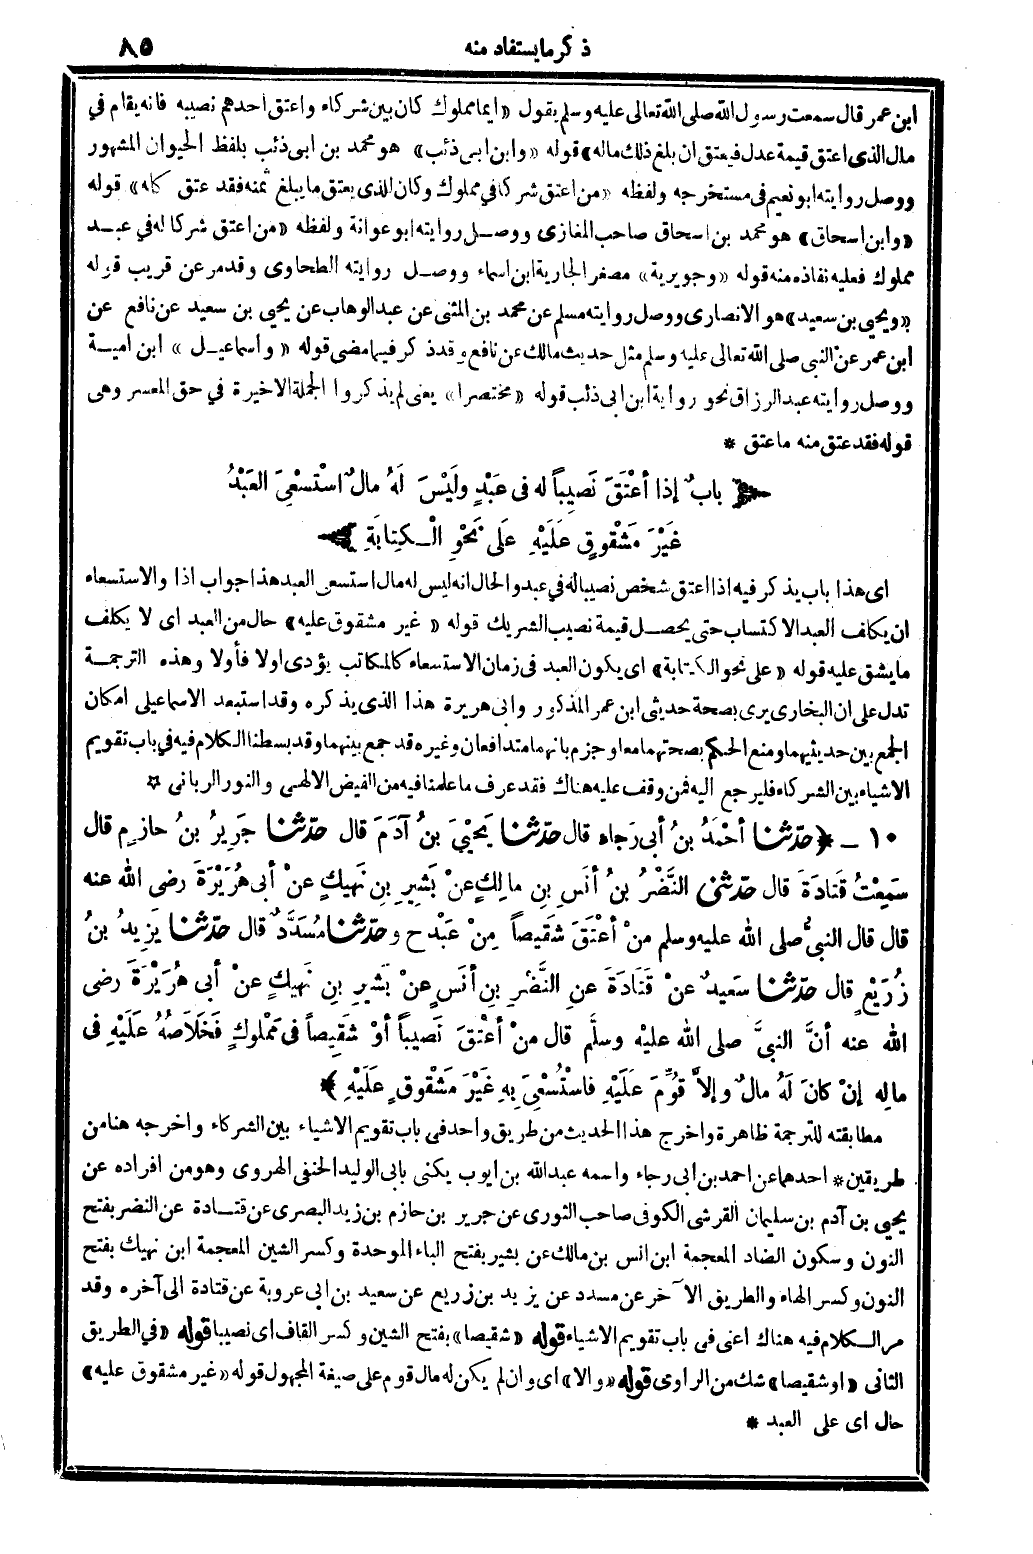 ذكر ما يستفاد منه ٨٥
ابن عمر قال سمعت رسول الله صلى الله تعالى عليه وسلم يقول «ايما مملوك كان بين شركاء واعتق احدهم نصيبه فانه يقام في
مال الذى اعتق قيمة عدل فيعتق ان بلغ ذلك ماله» قوله «وابن ابى ذئب» هو محمد بن ابى ذئب بلفظ الحيوان المشهور
ووصل روايته ابو نعيم فى مستخرجه ولفظه «من اعتق شركا في مملوك وكان الذى يعتق ما يبلغ ثمنه فقد عتق كله» قوله
«وابن اسحاق» هو محمد بن اسحاق صاحب المغازى ووصل روايته ابو عوانة ولفظه «من اعتق شركا له في عبد
مملوك فعليه نفاذه منه قوله «وجويرية» مصغر الجارية ابن اسماء ووصل روايته الطحاوى وقد مر عن قريب قوله
«ويحيى بن سعيد» هو الانصارى ووصل روايته مسلم عن محمد بن المثنى عن عبد الوهاب عن يحيى بن سعيد عن نافع عن
ابن عمر عن النبى صلى الله تعالى عليه وسلم مثل حديث مالك عن نافع وقد ذكر فيما مضى قوله «واسماعيل» ابن امية
ووصل روايته عبد الرزاق نحو رواية ابن ابى ذئب قوله «مختصرا» يعنى لم يذكروا الجملة الاخيرة في حق المعسر وهى
قوله فقد عتق منه ما عتق *
﴿ بابٌ إذا أعْتَقَ نَصِيباً له فى عَبْدٍ ولَيْسَ لَهُ مالٌ اسْتُسْعِىَ العَبْدُ
غَيْرَ مَشْقُوقٍ عَلَيْهِ عَلَى نَحْوِ الْكِتابَةِ ﴾
اى هذا باب يذكر فيه اذا اعتق شخص نصيبا له في عبد والحال انه ليس له مال استسعى العبد هذا جواب اذا والاستسعاء
ان يكلف العبد الاكتساب حتى يحصل قيمة نصيب الشريك قوله «غير مشقوق عليه» حال من العبد اى لا يكلف
ما يشق عليه قوله «على نحو الكتابة» اى يكون العبد فى زمان الاستسعاء كالمكاتب يؤدى اولا فأولا وهذه الترجمة
تدل على ان البخارى يرى بصحة حديثى ابن عمر المذكور وابى هريرة هذا الذى يذكره وقد استبعد الاسماعيلى امكان
الجمع بين حديثيهما ومنع الحكم بصحتهما معا وجزم بانهما متدافعان وغيره قد جمع بينهما وقد بسطنا الكلام فيه في باب تقويم
الاشياء بين الشركاء فليرجع اليه فمن وقف عليه هناك فقد عرف ما علمنا فيه من الفيض الالهى والنور الربانى *
١٠ ـ ﴿حدّثنا أحْمَدُ بنُ أبى رَجاءٍ قال حدّثنا يَحْيَى بنُ آدَمَ قال حدّثنا جَرِيرُ بنُ حازِمٍ قال
سَمِعْتُ قَتادَةَ قال حدّثنى النَّضْرُ بنُ أنَسِ بنِ مالِكٍ عنْ بَشِيرِ بنِ نَهِيكٍ عنْ أبى هُرَيْرَةَ رضى الله عنه
قال قال النبىُّ صلى الله عليه وسلم منْ أعْتَقَ شَقِيصاً مِنْ عَبْدٍ ح وحدّثنا مُسَدَّدٌ قال حدّثنا يَزِيدُ بنُ
زُرَيْعٍ قال حدّثنا سَعِيدٌ عنْ قَتادَةَ عنِ النَّضْرِ بنِ أنَسٍ عنْ بَشِيرِ بنِ نَهِيكٍ عنْ أبى هُرَيْرَةَ رضى
الله عنه أنَّ النبىَّ صلى الله عليْه وسلَّم قال منْ أعْتَقَ نَصِيباً أوْ شَقِيصاً فى مَمْلُوكٍ فَخَلَاصُهُ عَلَيْهِ فى
مالِهِ إنْ كانَ لَهُ مالٌ وإلاَّ قُوِّمَ عَلَيْهِ فاسْتُسْعِىَ بِهِ غَيْرَ مَشْقُوقٍ عَلَيْهِ ﴾
مطابقته للترجمة ظاهرة واخرج هذا الحديث من طريق واحد فى باب تقويم الاشياء بين الشركاء واخرجه هنا من
طريقين * احدهما عن احمد بن ابى رجاء واسمه عبد الله بن ايوب يكنى بابى الوليد الحنفى الهروى وهو من افراده عن
يحيى بن آدم بن سليمان القرشى الكوفى صاحب الثورى عن جرير بن حازم بن زيد البصرى عن قتادة عن النضر بفتح
النون وسكون الضاد المعجمة ابن انس بن مالك عن بشير بفتح الباء الموحدة وكسر الشين المعجمة ابن نهيك بفتح
النون وكسر الهاء والطريق الآخر عن مسدد عن يزيد بن زريع عن سعيد بن ابى عروبة عن قتادة الى آخره وقد
مر الكلام فيه هناك اعنى فى باب تقويم الاشياء قوله «شقيصا» بفتح الشين وكسر القاف اى نصيبا قوله «في الطريق
الثانى «او شقيصا» شك من الراوى قوله «والا» اى وان لم يكن له مال قوم على صيغة المجهول قوله «غير مشقوق عليه»
حال اى على العبد *